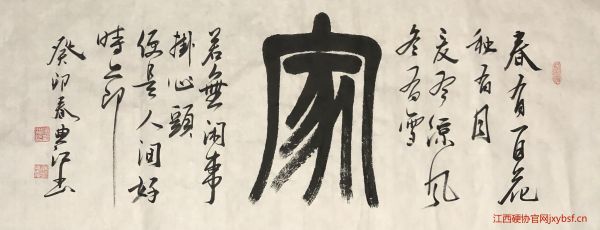 春有百花
秋有月
夏有涼风
冬有雪
家
若無闲事
掛心頭
便是人间好
時节
癸卯春江书
江西硬协官网jxybsf.cn